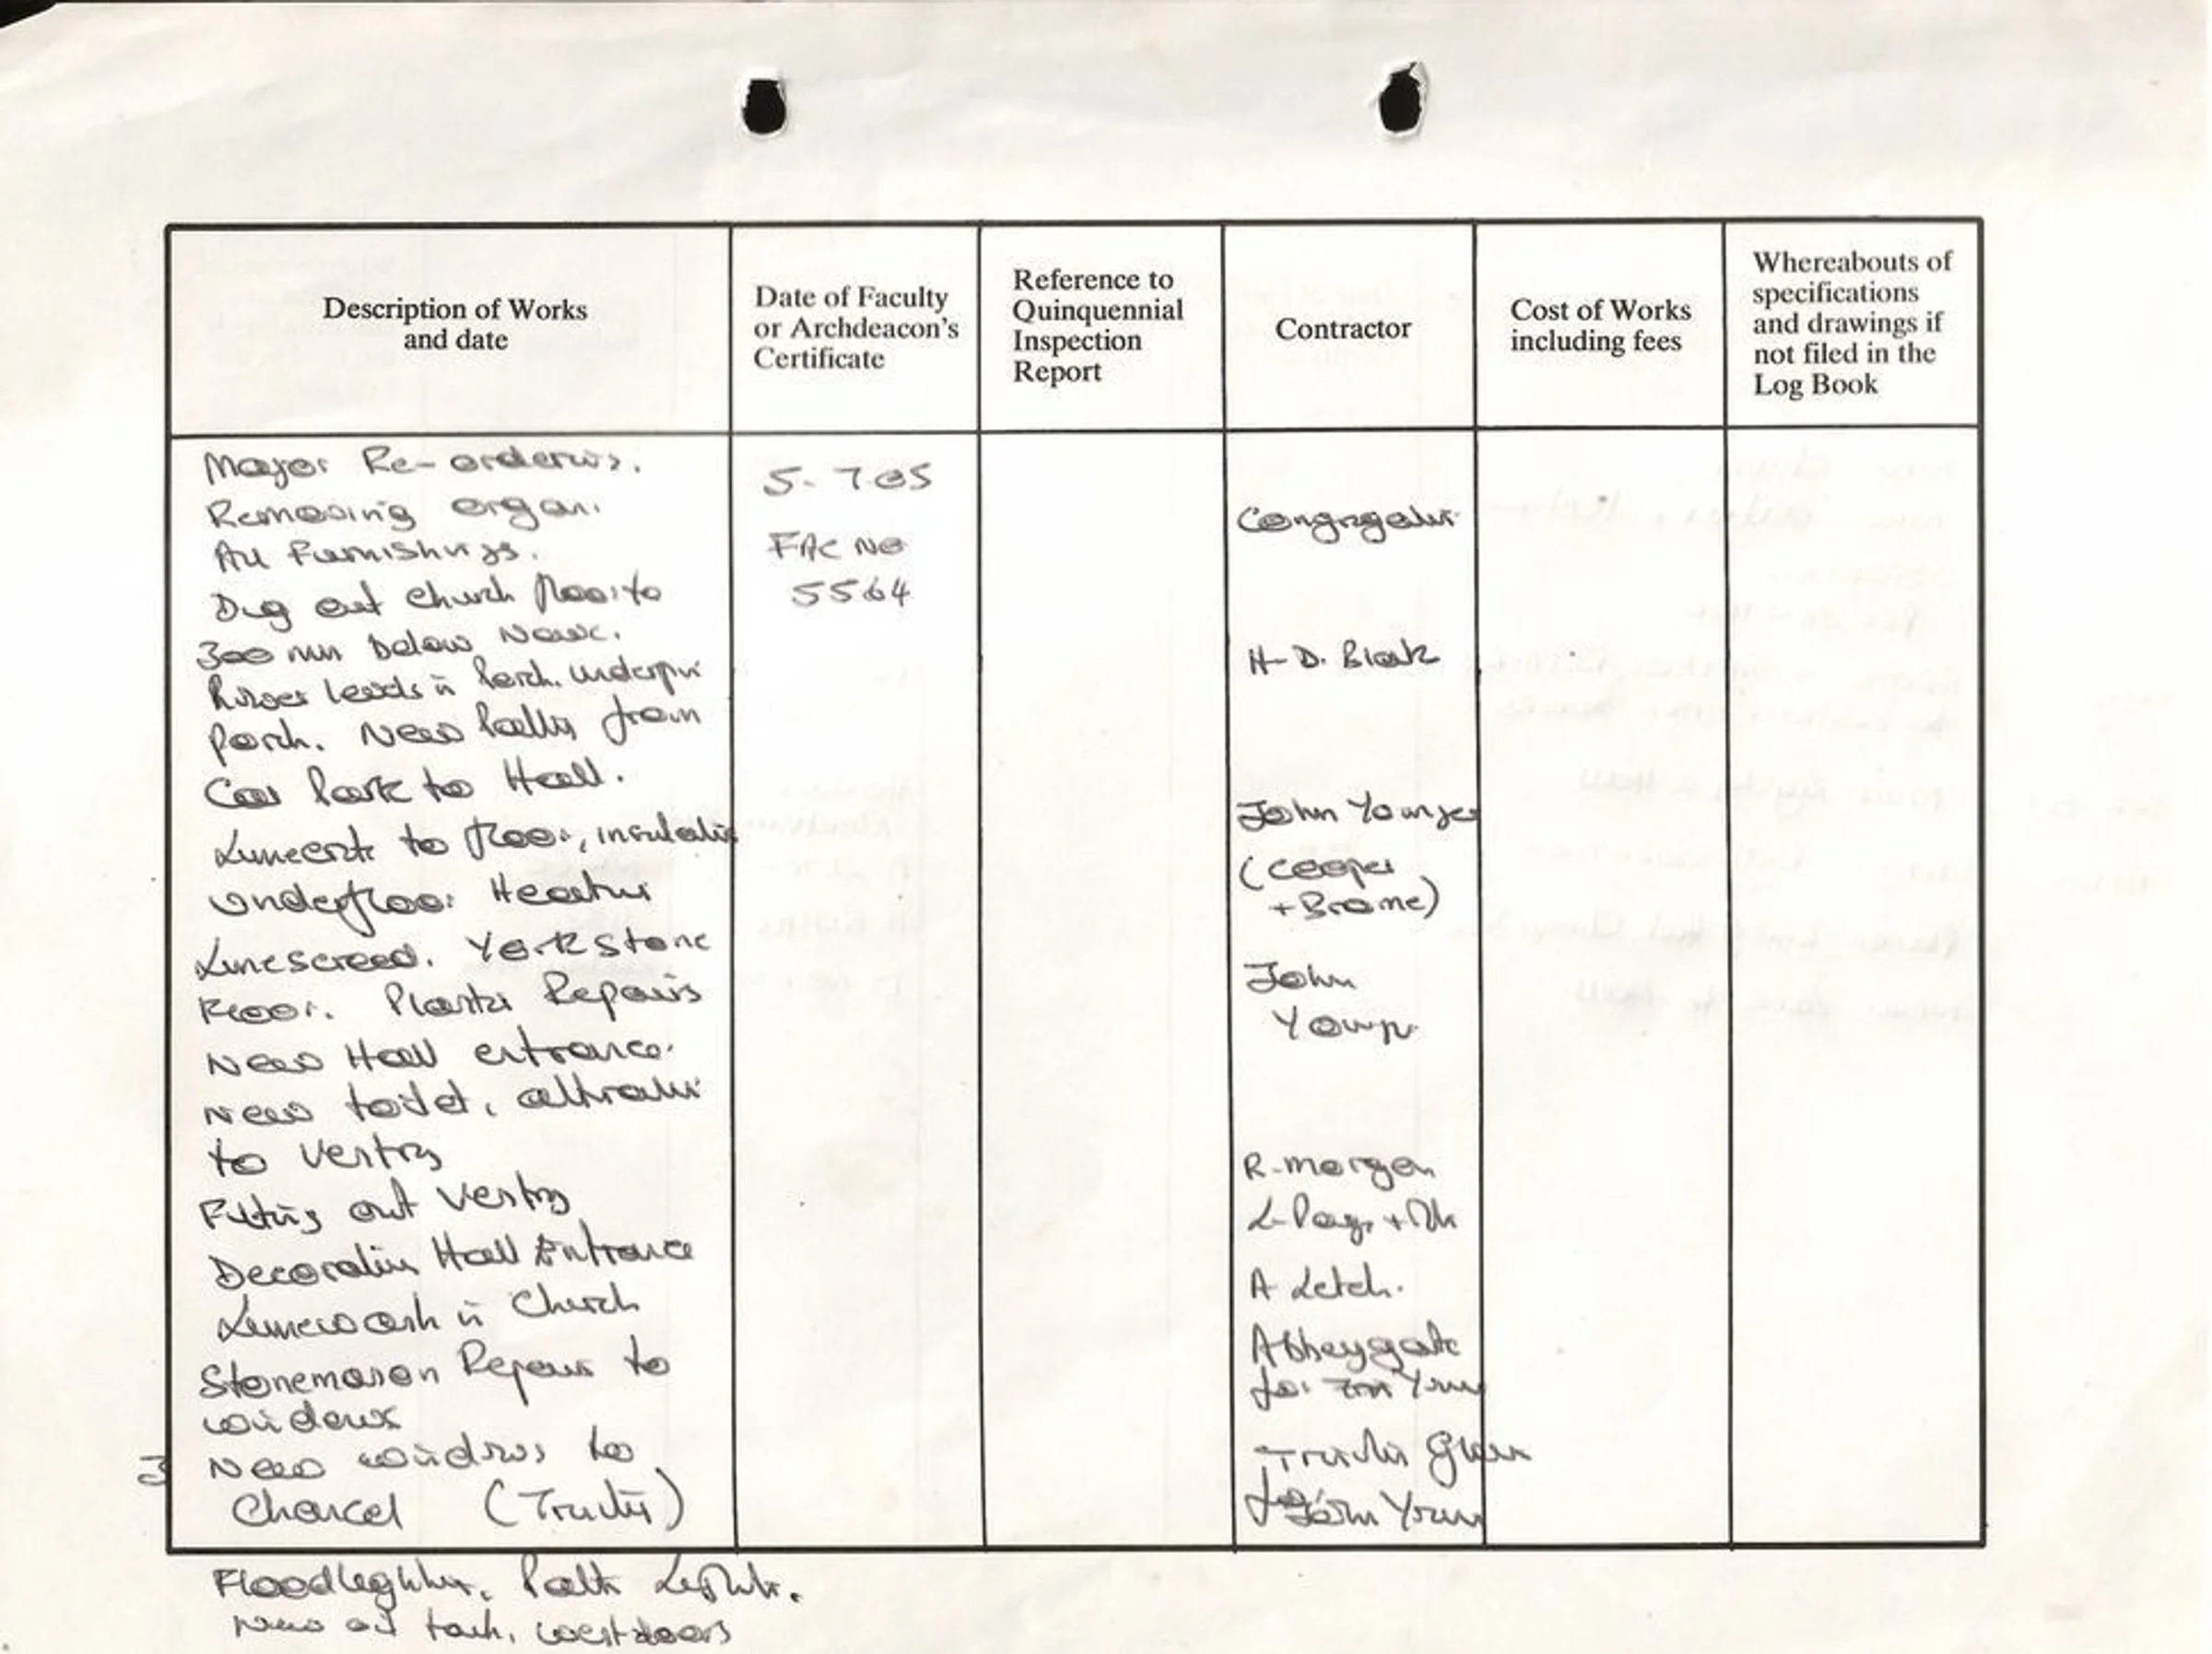 Description of Works
and date
Date of Faculty
or Archdeacon's
Certificate
Reference to
Quinquennial
Inspection
Report
Contractor
Cost of Works
including fees
Whereabouts of
specifications
and drawings if
not filed in the
Log Book
Major Re-ordering.
Removing organ.
All Furnishings.
Dug out church floor to
300 mm below Nave.
levels in Porch. underpin
Porch. New Paths from
Car Park to Hall.
Limecrete to floor, insulation
Underfloor Heating
Limescreed. York stone
Floor. Plaster Repairs
New Hall entrance.
New toilet,
to Vestry
Fitting out Vestry
Decorating Hall Entrance
Limewash in Church
Stonemason Repairs to
windows
New windows to
Chancel
5-7-05
FAC NO
5564
H-D. Black
John Younger
(Cooper
+ Brome)
John
R-Morgan
A Letch.
Abbeygate
for
for
Floodlighting. Path Lights.
New oil tank, west doors